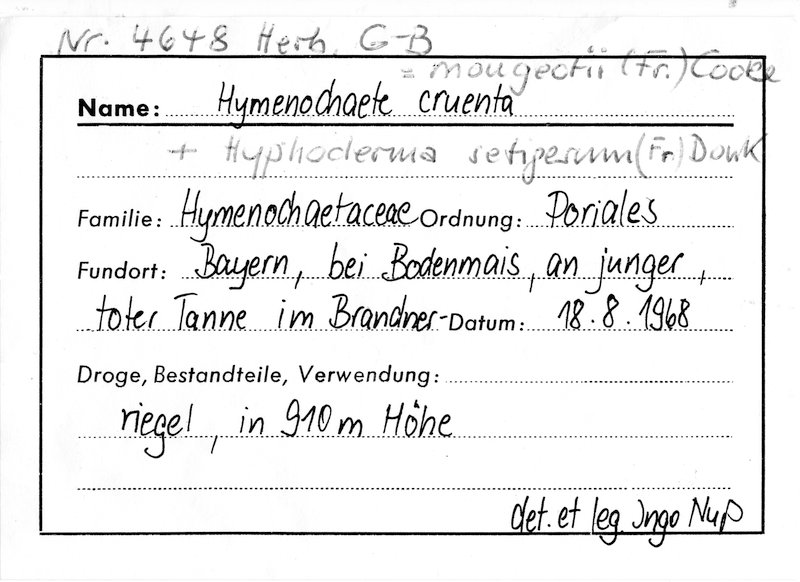 Nr. 4648 Herb. G-B
= mougeotii (Fr.) Cooke
Name: Hymenochaete cruenta
+ Hyphoderma setigerum (Fr.) Donk
Familie: Hymenochaetaceae Ordnung: Poriales
Fundort: Bayern, bei Bodenmais, an junger,
toter Tanne im Brandner- Datum: 18.8.1968
Droge, Bestandteile, Verwendung:
riegel, in 910 m Höhe
det. et leg. Ingo Nuß